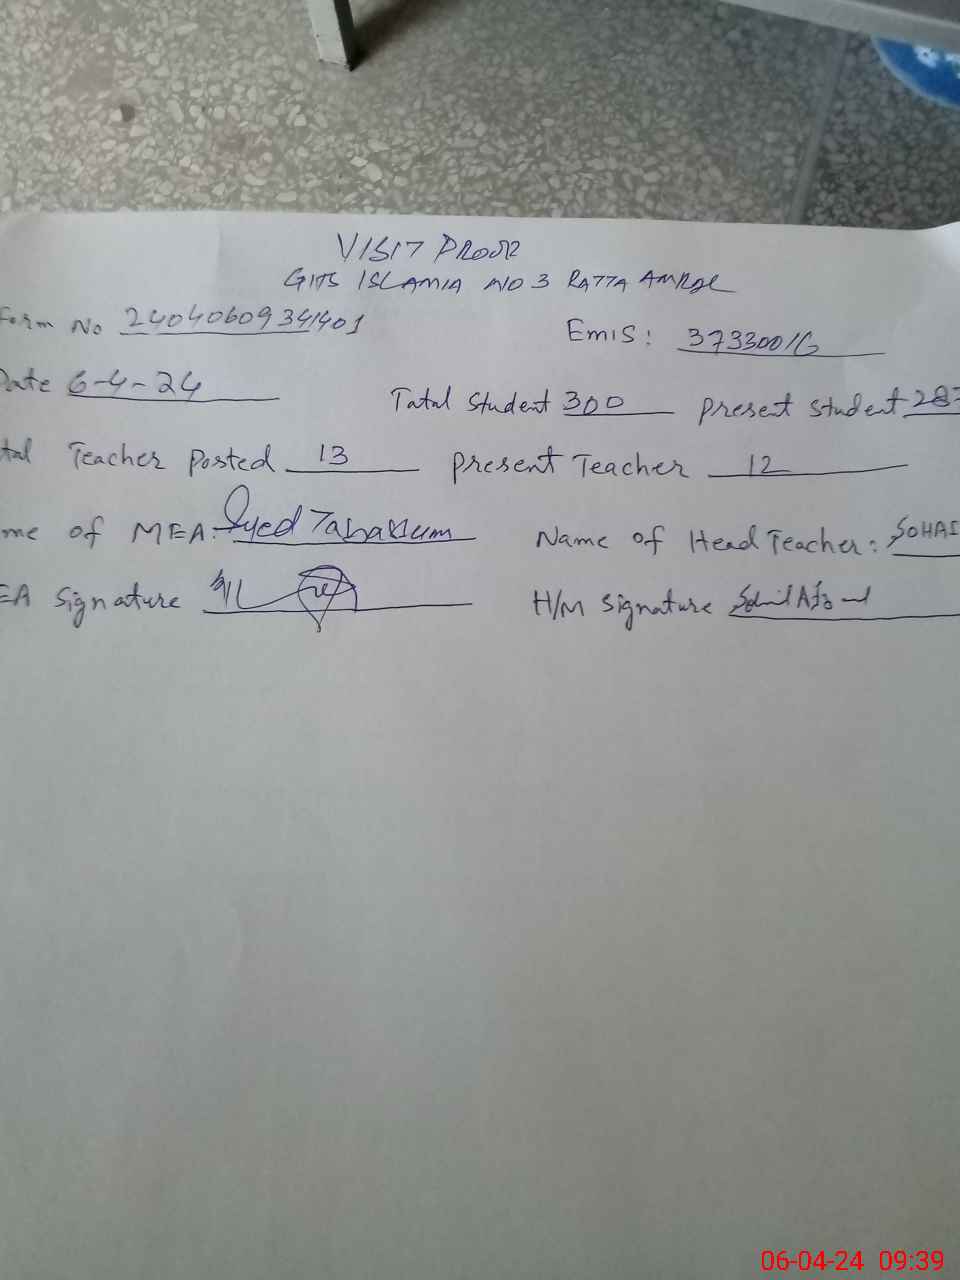 VISIT PROOF
GHS ISLAMIA NO 3 RATTA AMRAL
Form No 24040609341401 Emis: 37330016
Date 6-4-24 Tatal Student 300 Present Student 287
tal Teacher Posted 13 Present Teacher 12
me of MEA: Syed Tabassum Name of Head Teacher: SOHAI
EA Signature H/M Signature
06-04-24 09:39